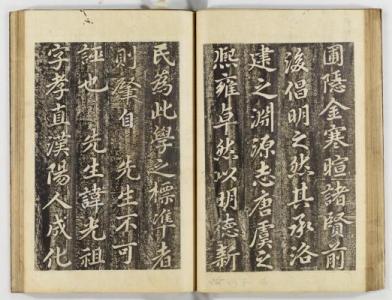 圃隱金寒暄諸賢前
後倡明之然其承洛
建之淵源志唐虞之
熙雍卓然以明德新
民為此學之標準者
則肇自 先生不可
誣也 先生諱光祖
字孝直漢陽人成化